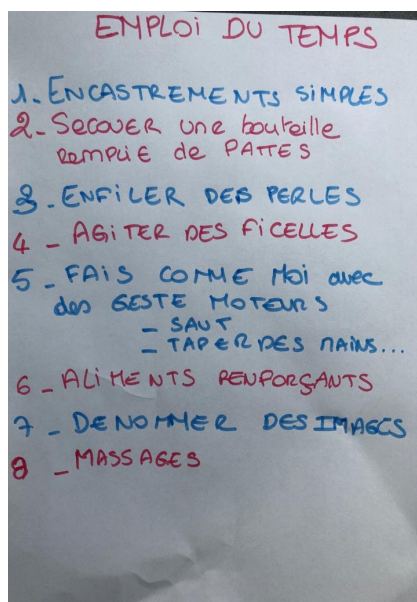 EMPLOI DU TEMPS
1. ENCASTREMENTS SIMPLES
2- SECOUER une bouteille
REMPLIE de PATTES
3. ENFILER DES PERLES
4 _ AGITER DES FICELLES
5 _ FAIS COMME MOI avec
des GESTE MOTEURS
_ SAUT
_ TAPER DES MAINS...
6 _ ALIMENTS RENFORÇANTS
7 _ DENOMMER DES IMAGES
8 _ MASSAGES